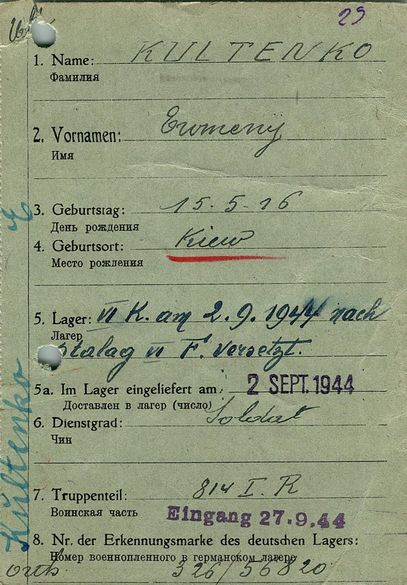 29
1. Name: KULTENKO
Фамилия
2. Vornamen:
Имя
3. Geburtstag: 15-5-16
День рождения
4. Geburtsort: Kiew
Место рождения
5. Lager: VI K. am 2.9.1944 nach
Лагер
Stalag VI F. versetzt.
5a. Im Lager eingeliefert am 2 SEPT. 1944
Доставлен в лагер (число)
6. Dienstgrad: Soldat
Чин
7. Truppenteil: 814 I. R
Воинская часть Eingang 27.9.44
8. Nr. der Erkennungsmarke des deutschen Lagers:
Номер военнопленного в германском лагере
326/55820
Kultenko E